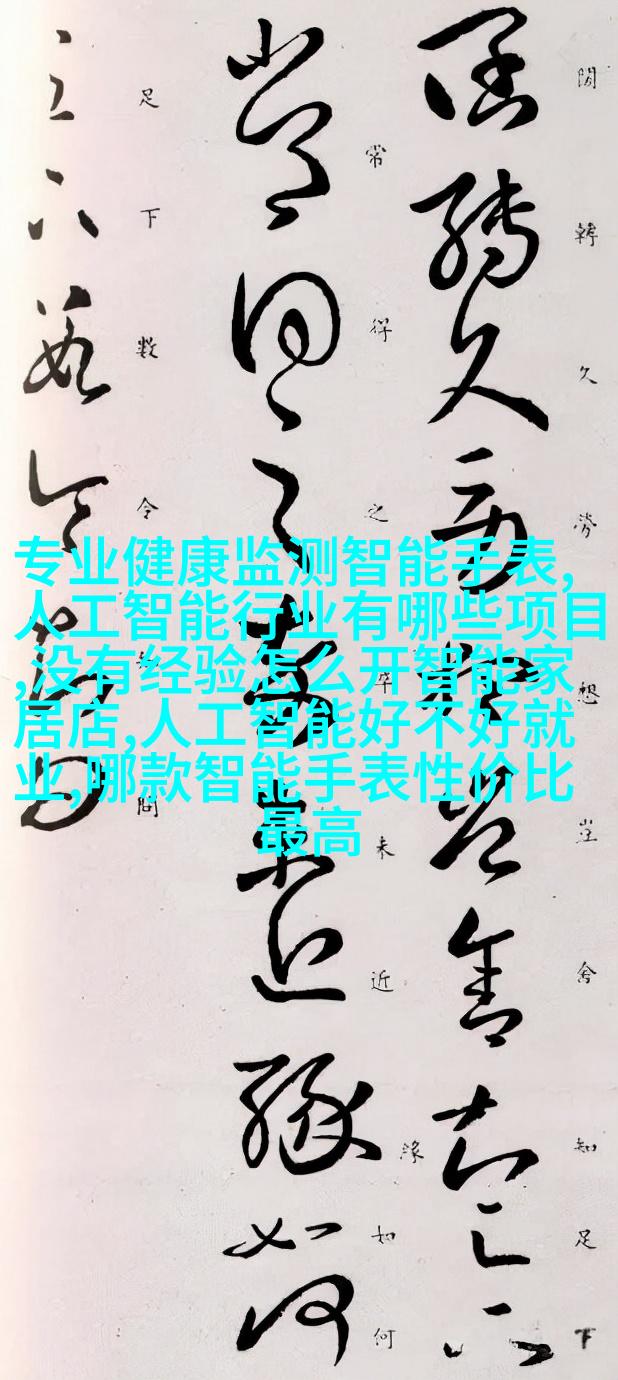 轉久勞想豈舍知足下
常得之未近緣如何
足下數令問
专业健康监测智能手表,
人工智能行业有哪些项目
,没有经验怎么开智能家
居店,人工智能好不好就
业,哪款智能手表性价比
最高